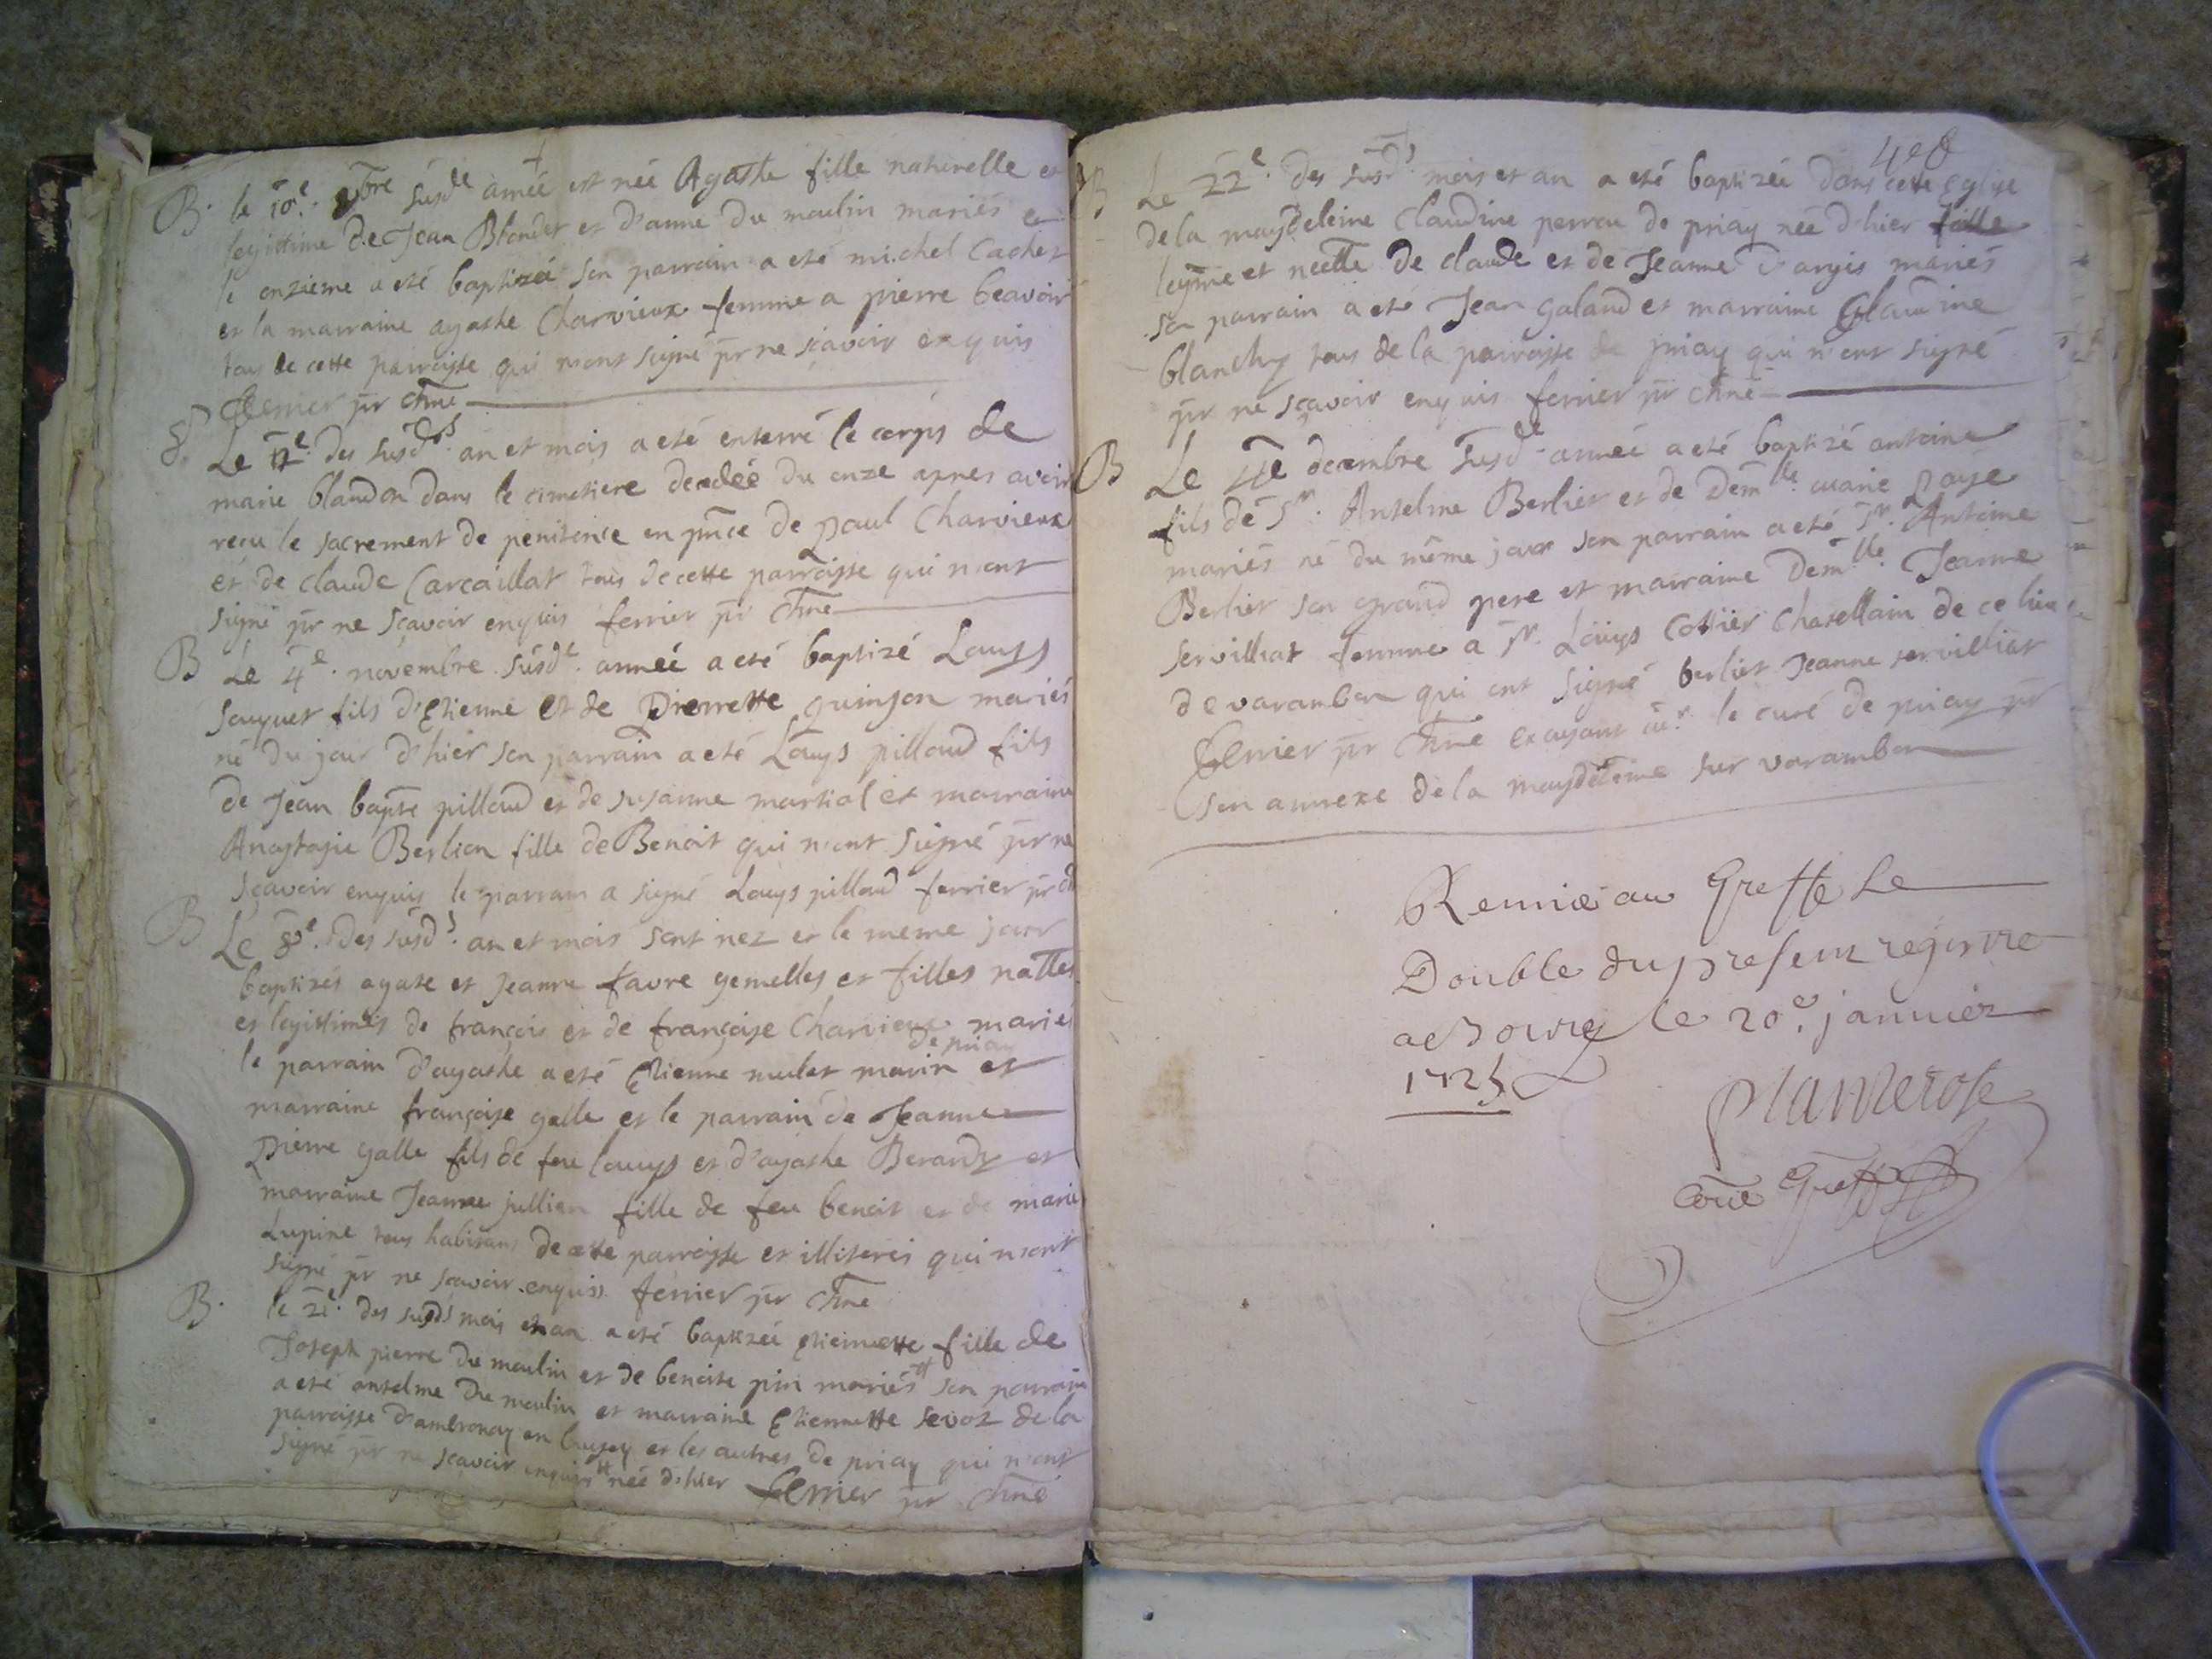 B. le 10e. 8bre susde année est née Agathe fille naturelle et
legittime de Jean Blondet et d'anne Du moulin mariés et
le onzieme a eté baptizée son parrain a eté michel Cachet
et la marraine agathe Charvieux femme a pierre beavoir
tous de cette parroisse qui n'ont signé pr ne sçavoir enquis
ferrier ptr
Le 12e. des susds. an et mois a eté enterré le corps de
marie blandon dans le cimetiere decedée du onze apres avoir
recu le sacrement de penitence en pnce de paul Charvieux
et de claude Carcaillat tous de cette parroisse qui n'ont
signé pr ne sçavoir enquis ferrier ptr
B Le 4e. novembre susde. année a eté baptizé Louys
Souquet fils d'Etienne et de Pierrette guinson mariés
né du jour d'hier son parrain a eté Louys pilloud fils
de Jean bapte pilloud et de susanne martial et marraine
Anastasie Berlion fille de Benoit qui n'ont signé pr ne
sçavoir enquis le parrain a signé Louys pilloud ferrier ptr
B Le 8e. des susds. an et mois sont nez et le meme jour
baptizés agate et Jeanne favre gemelles et filles natlles
et legittimes de françois et de françoise Charvieux mariés
de priay
le parrain d'agathe a eté Etienne mulet marin et
marraine françoise galle et le parrain de Jeanne
Pierre galle fils de feu louys et d'agathe Berardy et
marraine Jeanne jullien fille de feu benoit et de marie
Lupine tous habitans de cette parroisse et illiterés qui n'ont
signé pr ne sçavoir enquis ferrier ptr
B. le 21e. des susds mois et an a eté baptizée Etiennette fille de
Joseph pierre Du moulin et de benoite pin mariés # son parrain
a eté antelme Du moulin et marraine Etiennette sevoz de la
parroisse d'ambronay en bugey et les autres de priay qui n'ont
signé pr ne sçavoir enquis # née d'hier ferrier ptr
B Le 22e. des susds. mois et an a eté baptizée dans cette Eglise
de la maydeleine Claudine perrou de priay née d'hier fille
legme et nelle de claude et de Jeanne D'argis mariés
son parrain a eté Jean galand et marraine Claudine
blanchy tous de la parroisse de priay qui n'ont signé
pr ne sçavoir enquis ferrier ptr
B Le 4e decembre susde. année a eté baptizé antoine
fils de Sr. Antelme Berlier et de Demlle. marie paye
mariés né du même jour son parrain a eté Sr. Antoine
Berlier son grand pere et marraine Demlle. Jeanne
servilliat femme a Sr. Louys Cottier Chatellain de ce lieu
de varambon qui ont signé berlier Jeanne servilliat
ferrier ptr le curé de priay pr
son annexe de la maydeleine sur varambon
Remis au Greffe Le
Double du present registre
a Bourg le 20e. janvier
1725
Planterose
Greffe